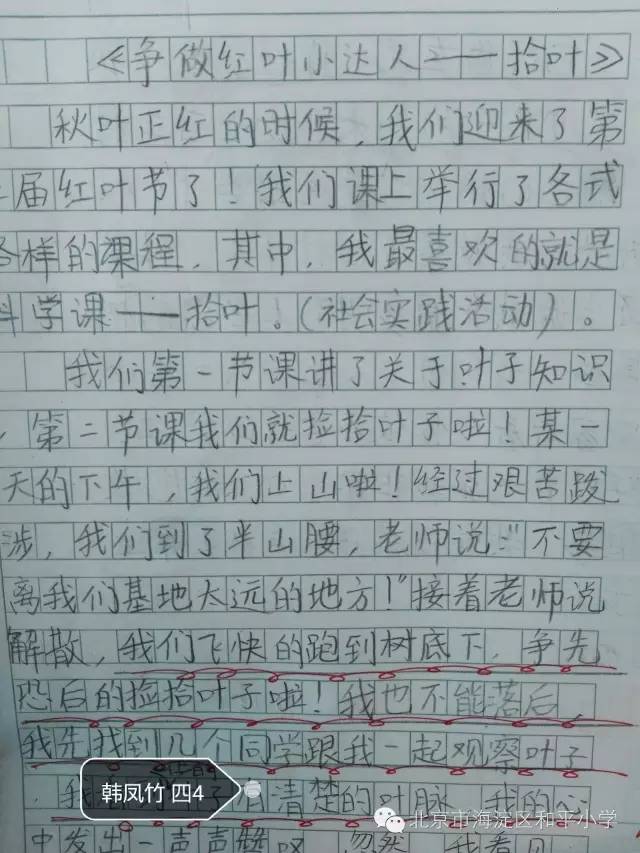 《争做红叶小达人——拾叶》
秋叶正红的时候，我们迎来了第
届红叶节了！我们课上举行了各式
各样的课程，其中，我最喜欢的就是
科学课——拾叶。（社会实践活动）。
我们第一节课讲了关于叶子知识
，第二节课我们就捡拾叶子啦！某一
天的下午，我们上山啦！经过艰苦跋
涉，我们到了半山腰，老师说："不要
离我们基地太远的地方！"接着老师说
解散，我们飞快的跑到树底下，争先
恐后的捡拾叶子啦！我也不能落后，
我先找到几个同学跟我一起观察叶子
，我 清楚的叶脉，我的心
中发出一声声赞叹，忽然，我看见
韩凤竹 四4
北京市海淀区和平小学